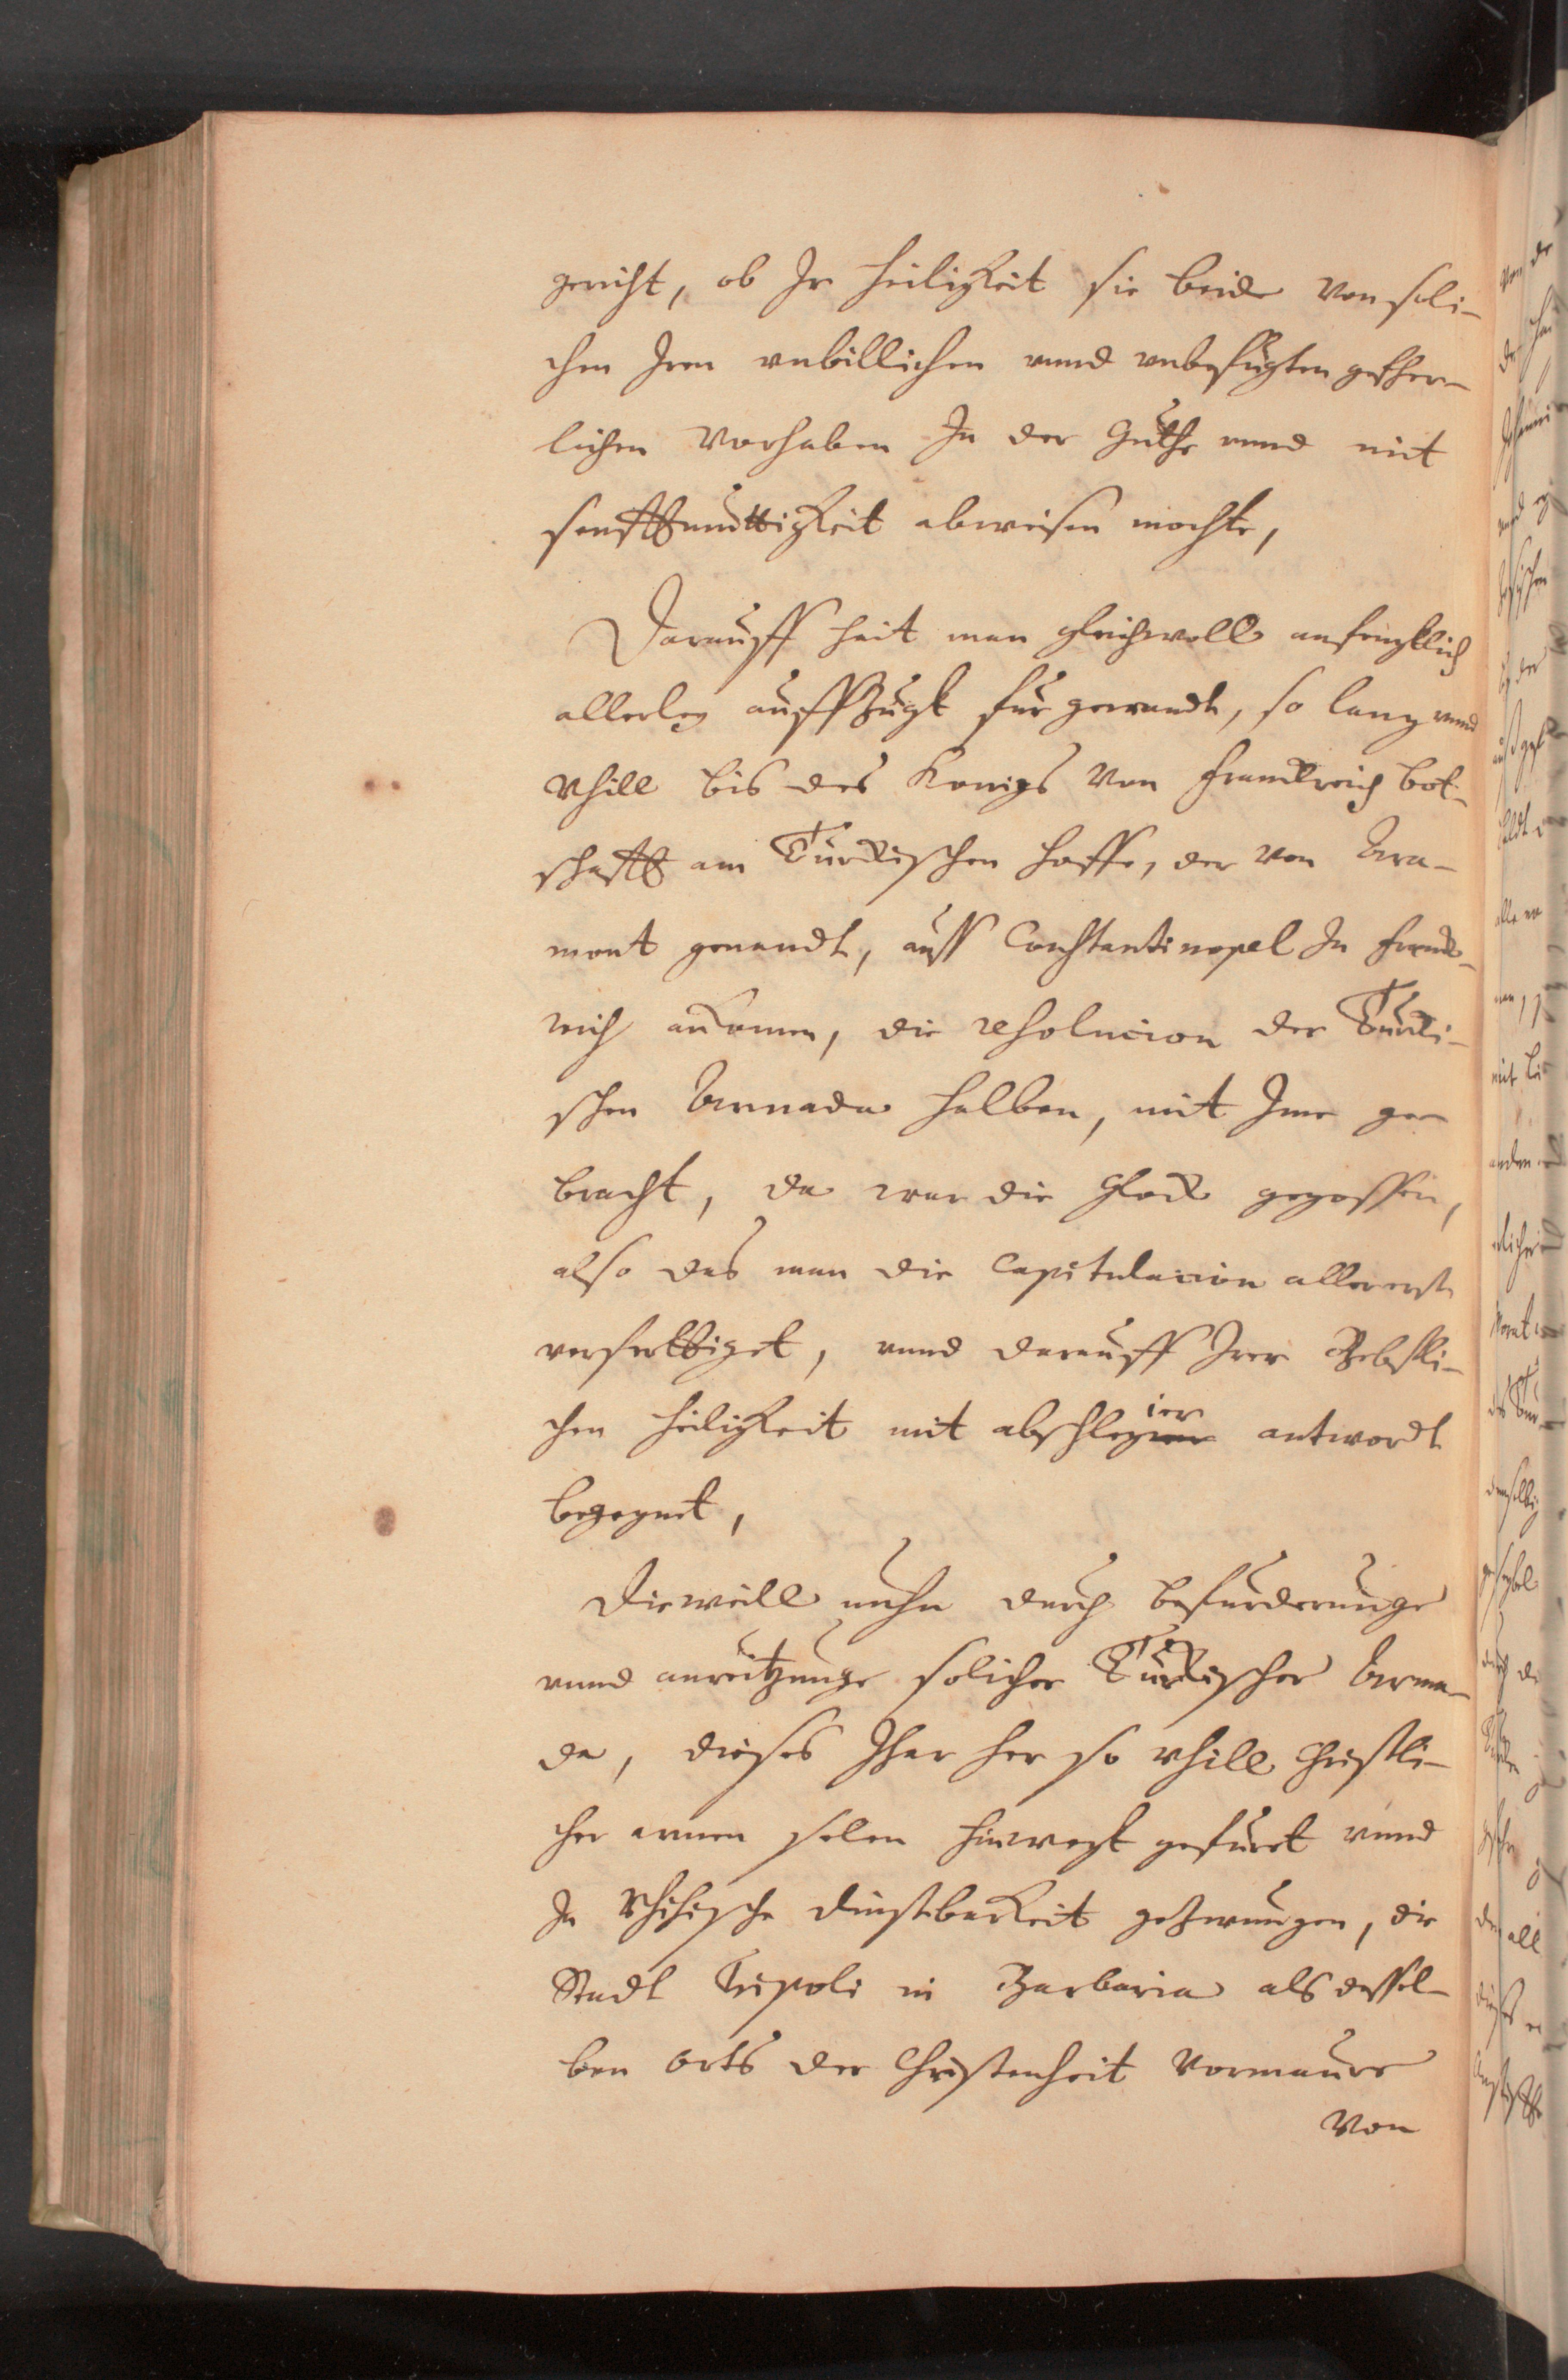 gericht, ob Ir Heiligkeit sie beide von soli-
chen Iren unbillichen unnd unbefugten gefher-
lichen Vorhaben In der Guthe unnd mit
senfftmuttigkeit abweisen mochte,
Darauff hait man gleichwoll anfengklich
allerley auffzugk furgewandt, so lang unnd
vhill bis des Konigs von Franckreich bot-
schafft am Turckischen Hoffe, der von Ara-
mont genandt, auss Constantinopel In Franck-
reich ankomen, die resolucion der Turcki-
schen Armada halben, mit Ime ge-
bracht, da war die Glock gegossen,
also das man die Capitulacion allererst
verferttiget, unnd darauff Irer Bebstli-
chen Heiligkeit mit abschlegier antwordt
begegnet,
Dieweill nuhn durch befurderunge
unnd anreitzunge solicher Turckischer Arma-
da, dieses Ihar her so vhill Christli-
cher armen selen hinwegk gefuret unnd
In Vhihische dinstbarkeit gezwungen, die
Stadt Tripoli in Barbaria als dessel-
ben orts der Christenheit Vormaure
von